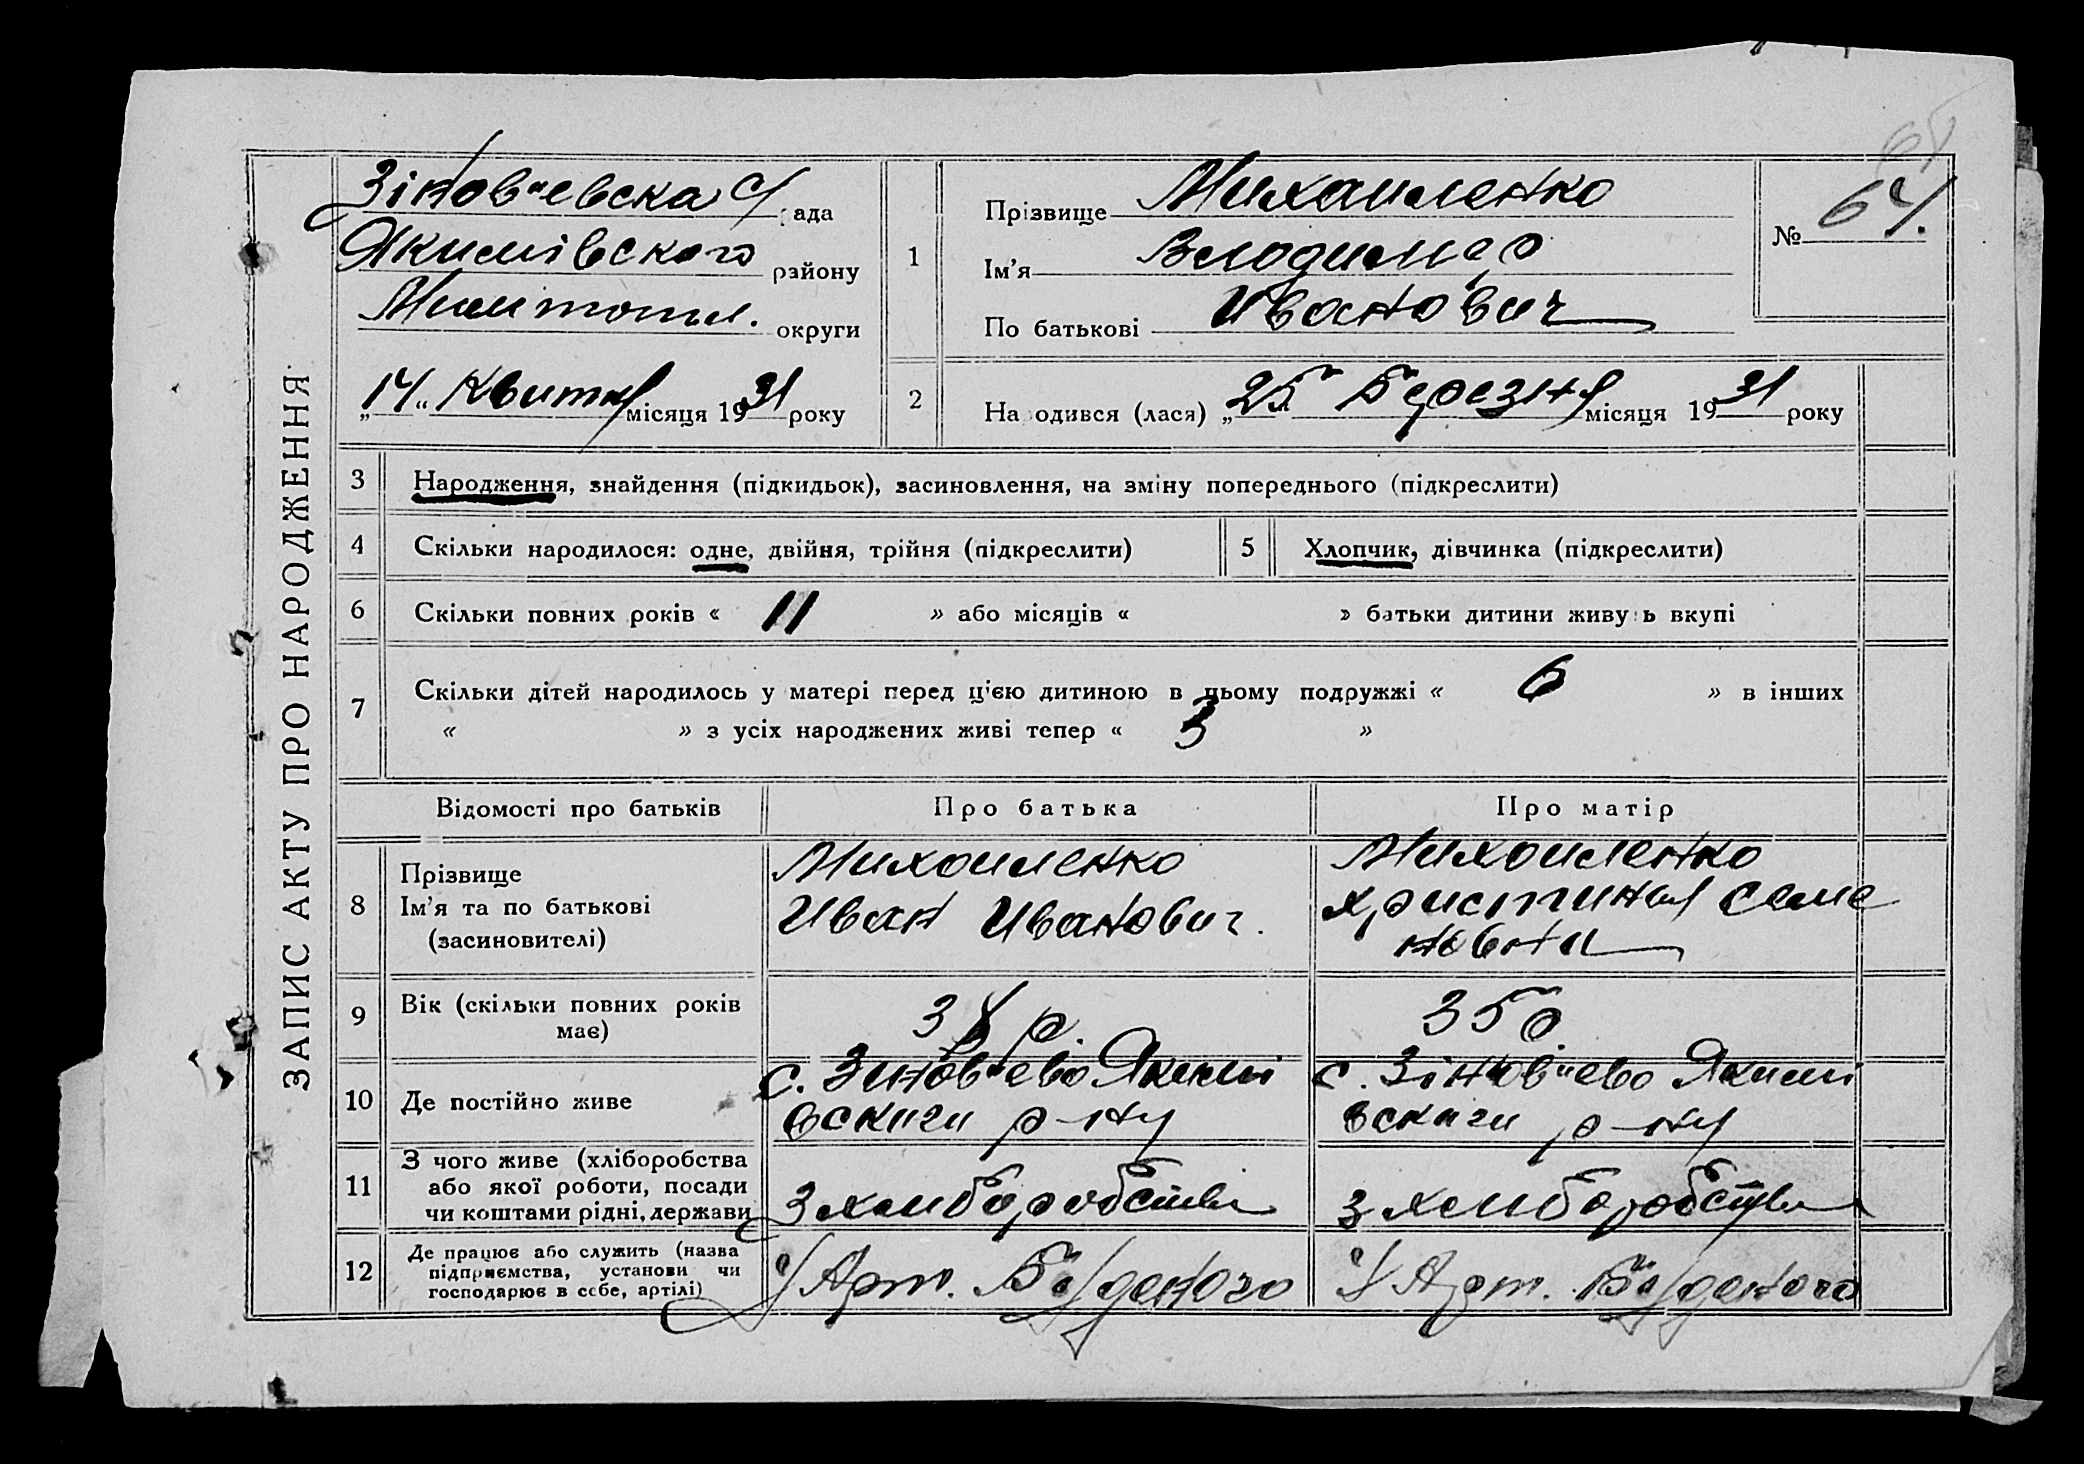 ЗАПИС АКТУ ПРО НАРОДЖЕННЯ
Зіновʼєвска С/рада
Якимівского району
Милитопил. округи
„14“ Квитня місяця 1931 року
1
Прізвище Михаиленко
Ім'я Володимер
По батькові Иванович
№ 64.
2
Народився (лася) „25“ Березня місяця 1931 року
3 Народження, знайдення (підкидьок), засиновлення, на зміну попереднього (підкреслити)
4 Скільки народилося: одне, двійня, трійня (підкреслити)
5 Хлопчик, дівчинка (підкреслити)
6 Скільки повних років « 11 » або місяців « » батьки дитини живуть вкупі
7 Скільки дітей народилось у матері перед ц'єю дитиною в цьому подружжі « 6 » в інших
« » з усіх народжених живі тепер « 3 »
Відомості про батьків Про батька Про матір
8
Прізвище
Ім'я та по батькові
(засиновителі)
Михаиленко
Иван Иванович.
Михаиленко
Христиния Семе
новна
9
Вік (скільки повних років
має)
38 р.
35 р.
10 Де постійно живе
с. Зиновʼєво Якимі
вскиги р-ну
с. Зіновʼєво Якимі
вскиги р-ну
11
З чого живе (хліборобства
або якої роботи, посади
чи коштами рідні, держави
З хлиборобства
З хлиборобства
12
Де працює або служить (назва
підприємства, установи чи
господарює в себе, артілі)
У Арт. Буденого
У Арт. Буденого